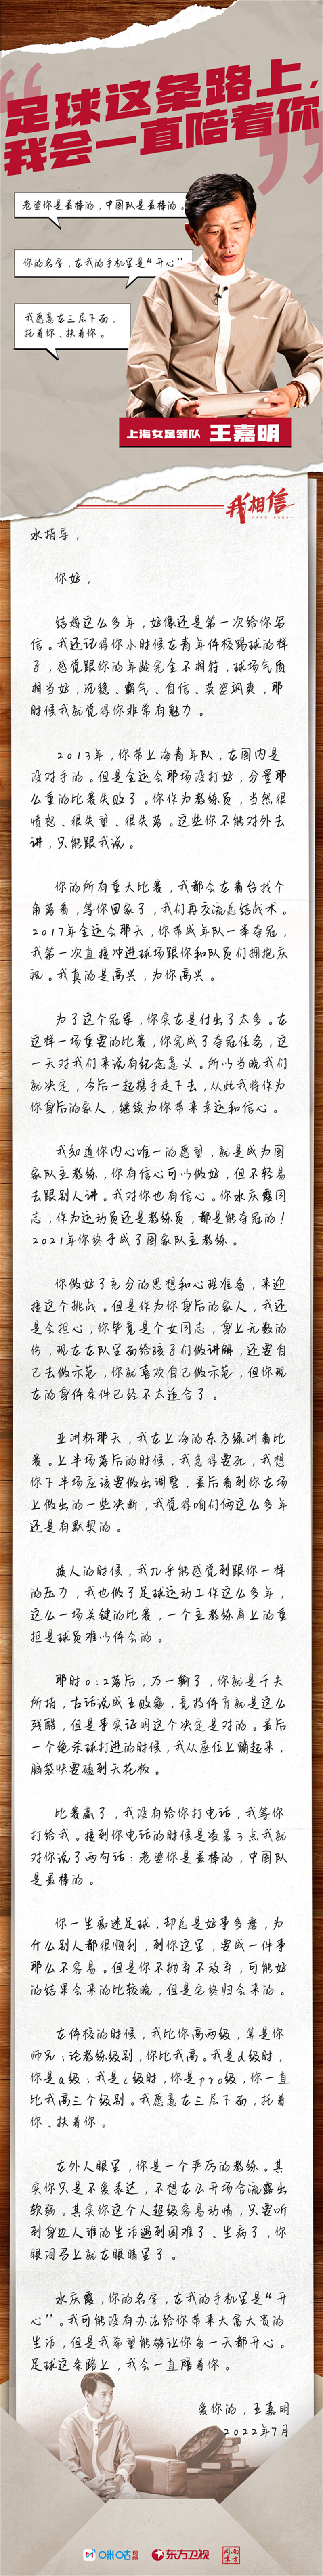 足球这条路上，
我会一直陪着你
老婆你是最棒的，中国队是最棒的。
你的名字，在我的手机里是“开心”
我愿意在三层下面，
托着你、扶着你。
上海女足领队 王嘉明
我相信
水指导，
你好，
结婚这么多年，好像还是第一次给你写
信。我还记得你小时候在青年体校踢球的样
子，感觉跟你的年龄完全不相符，球场气质
相当好，沉稳、霸气、自信、英姿飒爽，那
时候我就觉得你非常有魅力。
2013年，你带上海青年队，在国内是
没对手的。但是全运会那场没打好，分量那
么重的比赛失败了。你作为教练员，当然很
愤怒、很失望、很失落。这些你不能对外去
讲，只能跟我说。
你的所有重大比赛，我都会在看台找个
角落看，等你回家了，我们再交流总结战术。
2017年全运会那天，你带成年队一举夺冠，
我第一次直接冲进球场跟你和队员们拥抱庆
祝。我真的是高兴，为你高兴。
为了这个冠军，你实在是付出了太多。在
这样一场重要的比赛，你完成了夺冠任务，这
一天对我们来说有纪念意义。所以当晚我们
就决定，今后一起携手走下去，从此我将作为
你身后的家人，继续为你带来幸运和信心。
我知道你内心唯一的愿望，就是成为国
家队主教练，你有信心可以做好，但不轻易
去跟别人讲。我对你也有信心。你水庆霞同
志，作为运动员还是教练员，都是能夺冠的！
2021年你终于成了国家队主教练。
你做好了充分的思想和心理准备，来迎
接这个挑战。但是作为你身后的家人，我还
是会担心，你毕竟是个女同志，身上无数的
伤，现在在队里面给孩子们做讲解，还要自
己去做示范，你就喜欢自己做示范，但你现
在的身体条件已经不太适合了。
亚洲杯那天，我在上海的东方绿洲看比
赛。上半场落后的时候，我急得要死，我想
你下半场应该要做出调整，最后看到你在场
上做出的一些决断，我觉得咱们俩这么多年
还是有默契的。
换人的时候，我几乎能感觉到跟你一样
的压力，我也做了足球运动工作这么多年，
这么一场关键的比赛，一个主教练肩上的重
担是球员难以体会的。
那时0:2落后，万一输了，你就是千夫
所指，古话说成王败寇，竞技体育就是这么
残酷，但是事实证明这个决定是对的。最后
一个绝杀球打进的时候，我从座位上蹦起来，
脑袋快要碰到天花板。
比赛赢了，我没有给你打电话，我等你
打给我。接到你电话的时候是凌晨3点我就
对你说了两句话：老婆你是最棒的，中国队
是最棒的。
你一生痴迷足球，却总是好事多磨，为
什么别人都很顺利，到你这里，要成一件事
那么不容易。但是你不抛弃不放弃，可能好
的结果会来的比较晚，但是它终归会来的。
在体校的时候，我比你高两级，算是你
师兄；论教练级别，你比我高。我是d级时，
你是a级；我是c级时，你是pro级，你一直
比我高三个级别。我愿意在三层下面，托着
你、扶着你。
在外人眼里，你是一个严厉的教练。其
实你只是不爱表达，不想在公开场合流露出
软弱。其实你这个人超级容易动情，只要听
到身边人谁的生活遇到困难了、生病了，你
眼泪马上就在眼睛里了。
水庆霞，你的名字，在我的手机里是“开
心”。我可能没有办法给你带来大富大贵的
生活，但是我希望能够让你每一天都开心。
足球这条路上，我会一直陪着你。
爱你的，王嘉明
2022年7月
咪咕视频 东方卫视